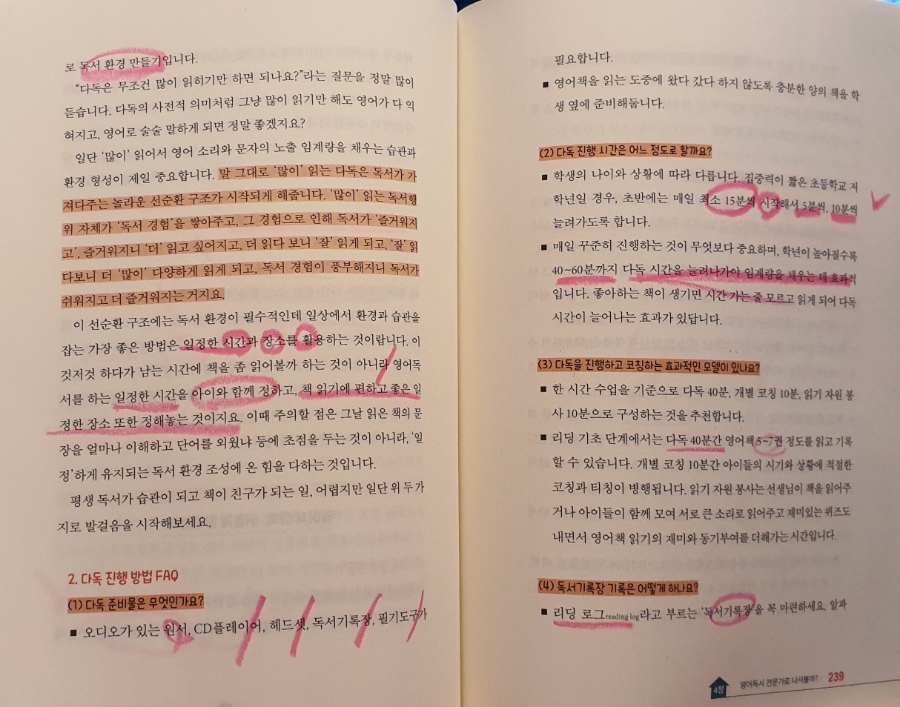 로 독서 환경 만들기입니다.
“다독은 무조건 많이 읽히기만 하면 되나요?”라는 질문을 정말 많이
듣습니다. 다독의 사전적 의미처럼 그냥 많이 읽기만 해도 영어가 다 익
혀지고, 영어로 술술 말하게 되면 정말 좋겠지요?
일단 ‘많이’ 읽어서 영어 소리와 문자의 노출 임계량을 채우는 습관과
환경 형성이 제일 중요합니다. 말 그대로 ‘많이’ 읽는 다독은 독서가 가
져다주는 놀라운 선순환 구조가 시작되게 해줍니다. ‘많이’ 읽는 독서행
위 자체가 ‘독서 경험’을 쌓아주고, 그 경험으로 인해 독서가 ‘즐거워지
고’, 즐거워지니 ‘더’ 읽고 싶어지고, 더 읽다 보니 ‘잘’ 읽게 되고, ‘잘’ 읽
다보니 더 ‘많이’ 다양하게 읽게 되고, 독서 경험이 풍부해지니 독서가
쉬워지고 더 즐거워지는 거지요.
이 선순환 구조에는 독서 환경이 필수적인데 일상에서 환경과 습관을
잡는 가장 좋은 방법은 일정한 시간과 장소를 활용하는 것이랍니다. 이
것저것 하다가 남는 시간에 책을 좀 읽어볼까 하는 것이 아니라 영어독
서를 하는 일정한 시간을 아이와 함께 정하고, 책 읽기에 편하고 좋은 일
정한 장소 또한 정해놓는 것이지요. 이때 주의할 점은 그날 읽은 책의 문
장을 얼마나 이해하고 단어를 외웠나 등에 초점을 두는 것이 아니라, ‘일
정’하게 유지되는 독서 환경 조성에 온 힘을 다하는 것입니다.
평생 독서가 습관이 되고 책이 친구가 되는 일, 어렵지만 일단 위 두 가
지로 발걸음을 시작해보세요.
2. 다독 진행 방법 FAQ
(1) 다독 준비물은 무엇인가요?
■ 오디오가 있는 원서, CD플레이어, 헤드셋, 독서기록장, 필기도구가
필요합니다.
■ 영어책을 읽는 도중에 왔다 갔다 하지 않도록 충분한 양의 책을 학
생 옆에 준비해둡니다.
(2) 다독 진행 시간은 어느 정도로 할까요?
■ 학생의 나이와 상황에 따라 다릅니다. 집중력이 짧은 초등학교 저
학년일 경우, 초반에는 매일 최소 15분씩 시작해서 5분씩, 10분씩
늘려가도록 합니다.
■ 매일 꾸준히 진행하는 것이 무엇보다 중요하며, 학년이 높아질수록
40~60분까지 다독 시간을 늘려나가야 임계량을 채우는 데 효과적
입니다. 좋아하는 책이 생기면 시간 가는 줄 모르고 읽게 되어 다독
시간이 늘어나는 효과가 있답니다.
(3) 다독을 진행하고 코칭하는 효과적인 모델이 있나요?
■ 한 시간 수업을 기준으로 다독 40분, 개별 코칭 10분, 읽기 자원 봉
사 10분으로 구성하는 것을 추천합니다.
■ 리딩 기초 단계에서는 다독 40분간 영어책 5~7권 정도를 읽고 기록
할 수 있습니다. 개별 코칭 10분간 아이들의 시기와 상황에 적절한
코칭과 티칭이 병행됩니다. 읽기 자원 봉사는 선생님이 책을 읽어주
거나 아이들이 함께 모여 서로 큰 소리로 읽어주고 재미있는 퀴즈도
내면서 영어책 읽기의 재미와 동기부여를 더해가는 시간입니다.
(4) 독서기록장 기록은 어떻게 하나요?
■ 리딩 로그reading log라고 부르는 ‘독서기록장’을 꼭 마련하세요. 알파
4장 영어독서 전문가로 나서볼까? 239